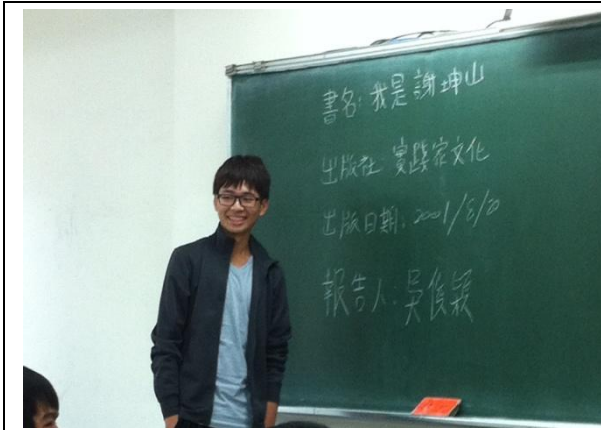 書名:我是謝坤山
出版社:實踐家文化
出版日期:2001/8/20
報告人:吳俊穎